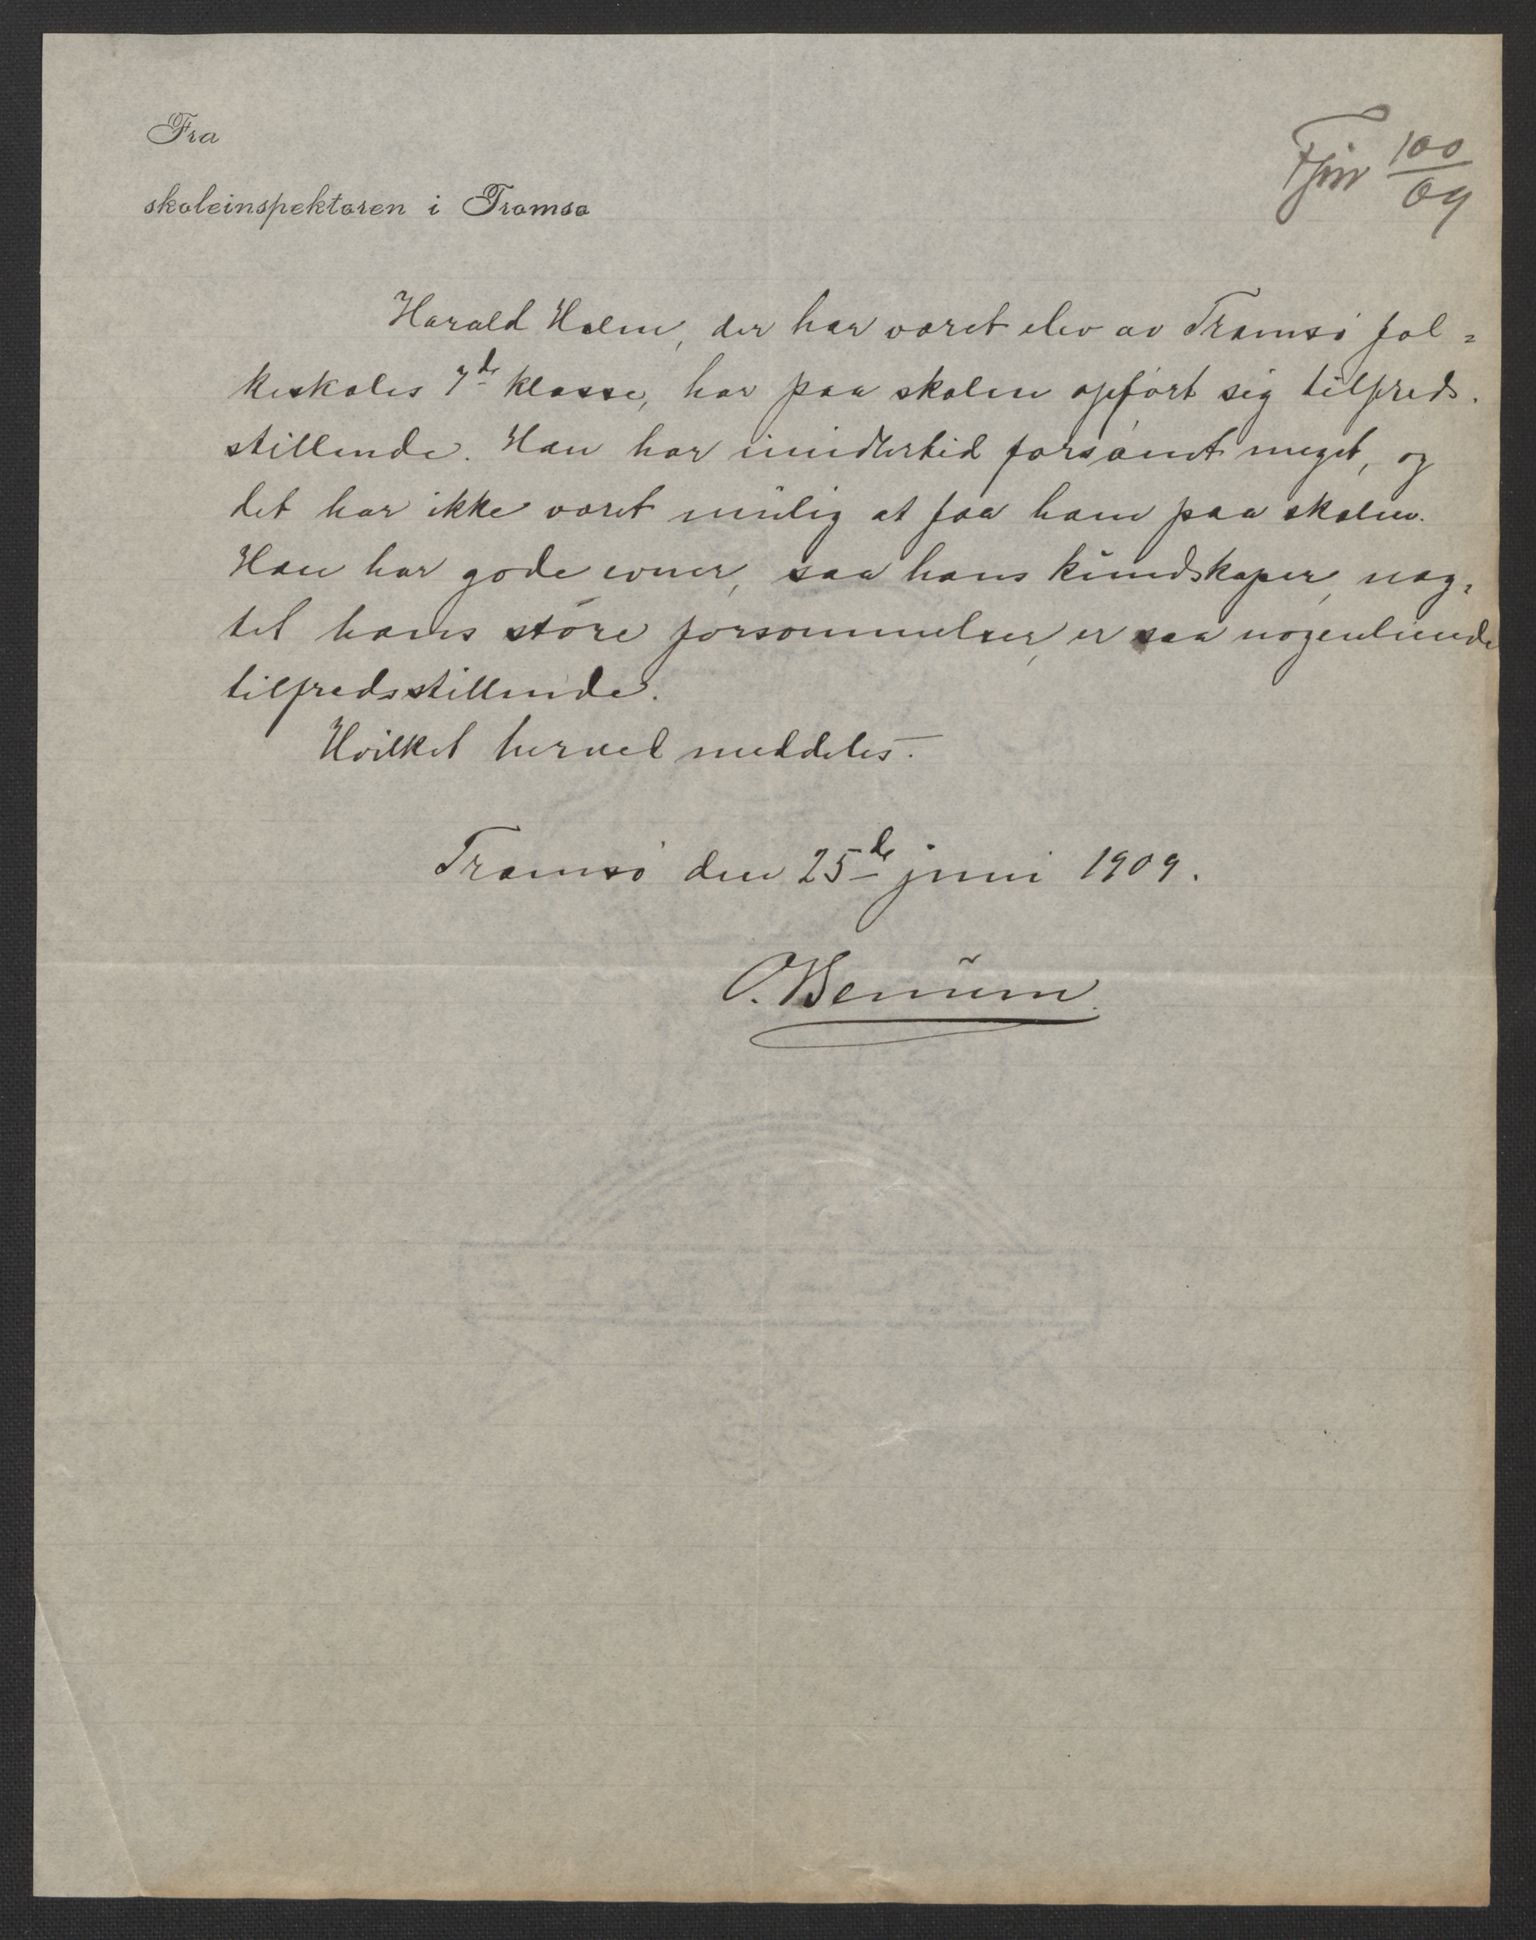 Fra
skoleinspektøren i Tromsø
Fjnr 100/09
Harald Holm, der har været elev av Tromsø fol=
keskoles 7de klasse, har paa skolen opført sig tilfreds-
stillende. Han har imidlertid forsømt meget, og
det har ikke været mulig at faa ham paa skolen.
Han har gode evner, saa hans kundskaper, nag=
tet hans støre forsømmelser, er saa nogenlunde
tilfredsstillende.
Hvilket herved meddeles.
Tromsø den 25de juni 1909.
O. Benum